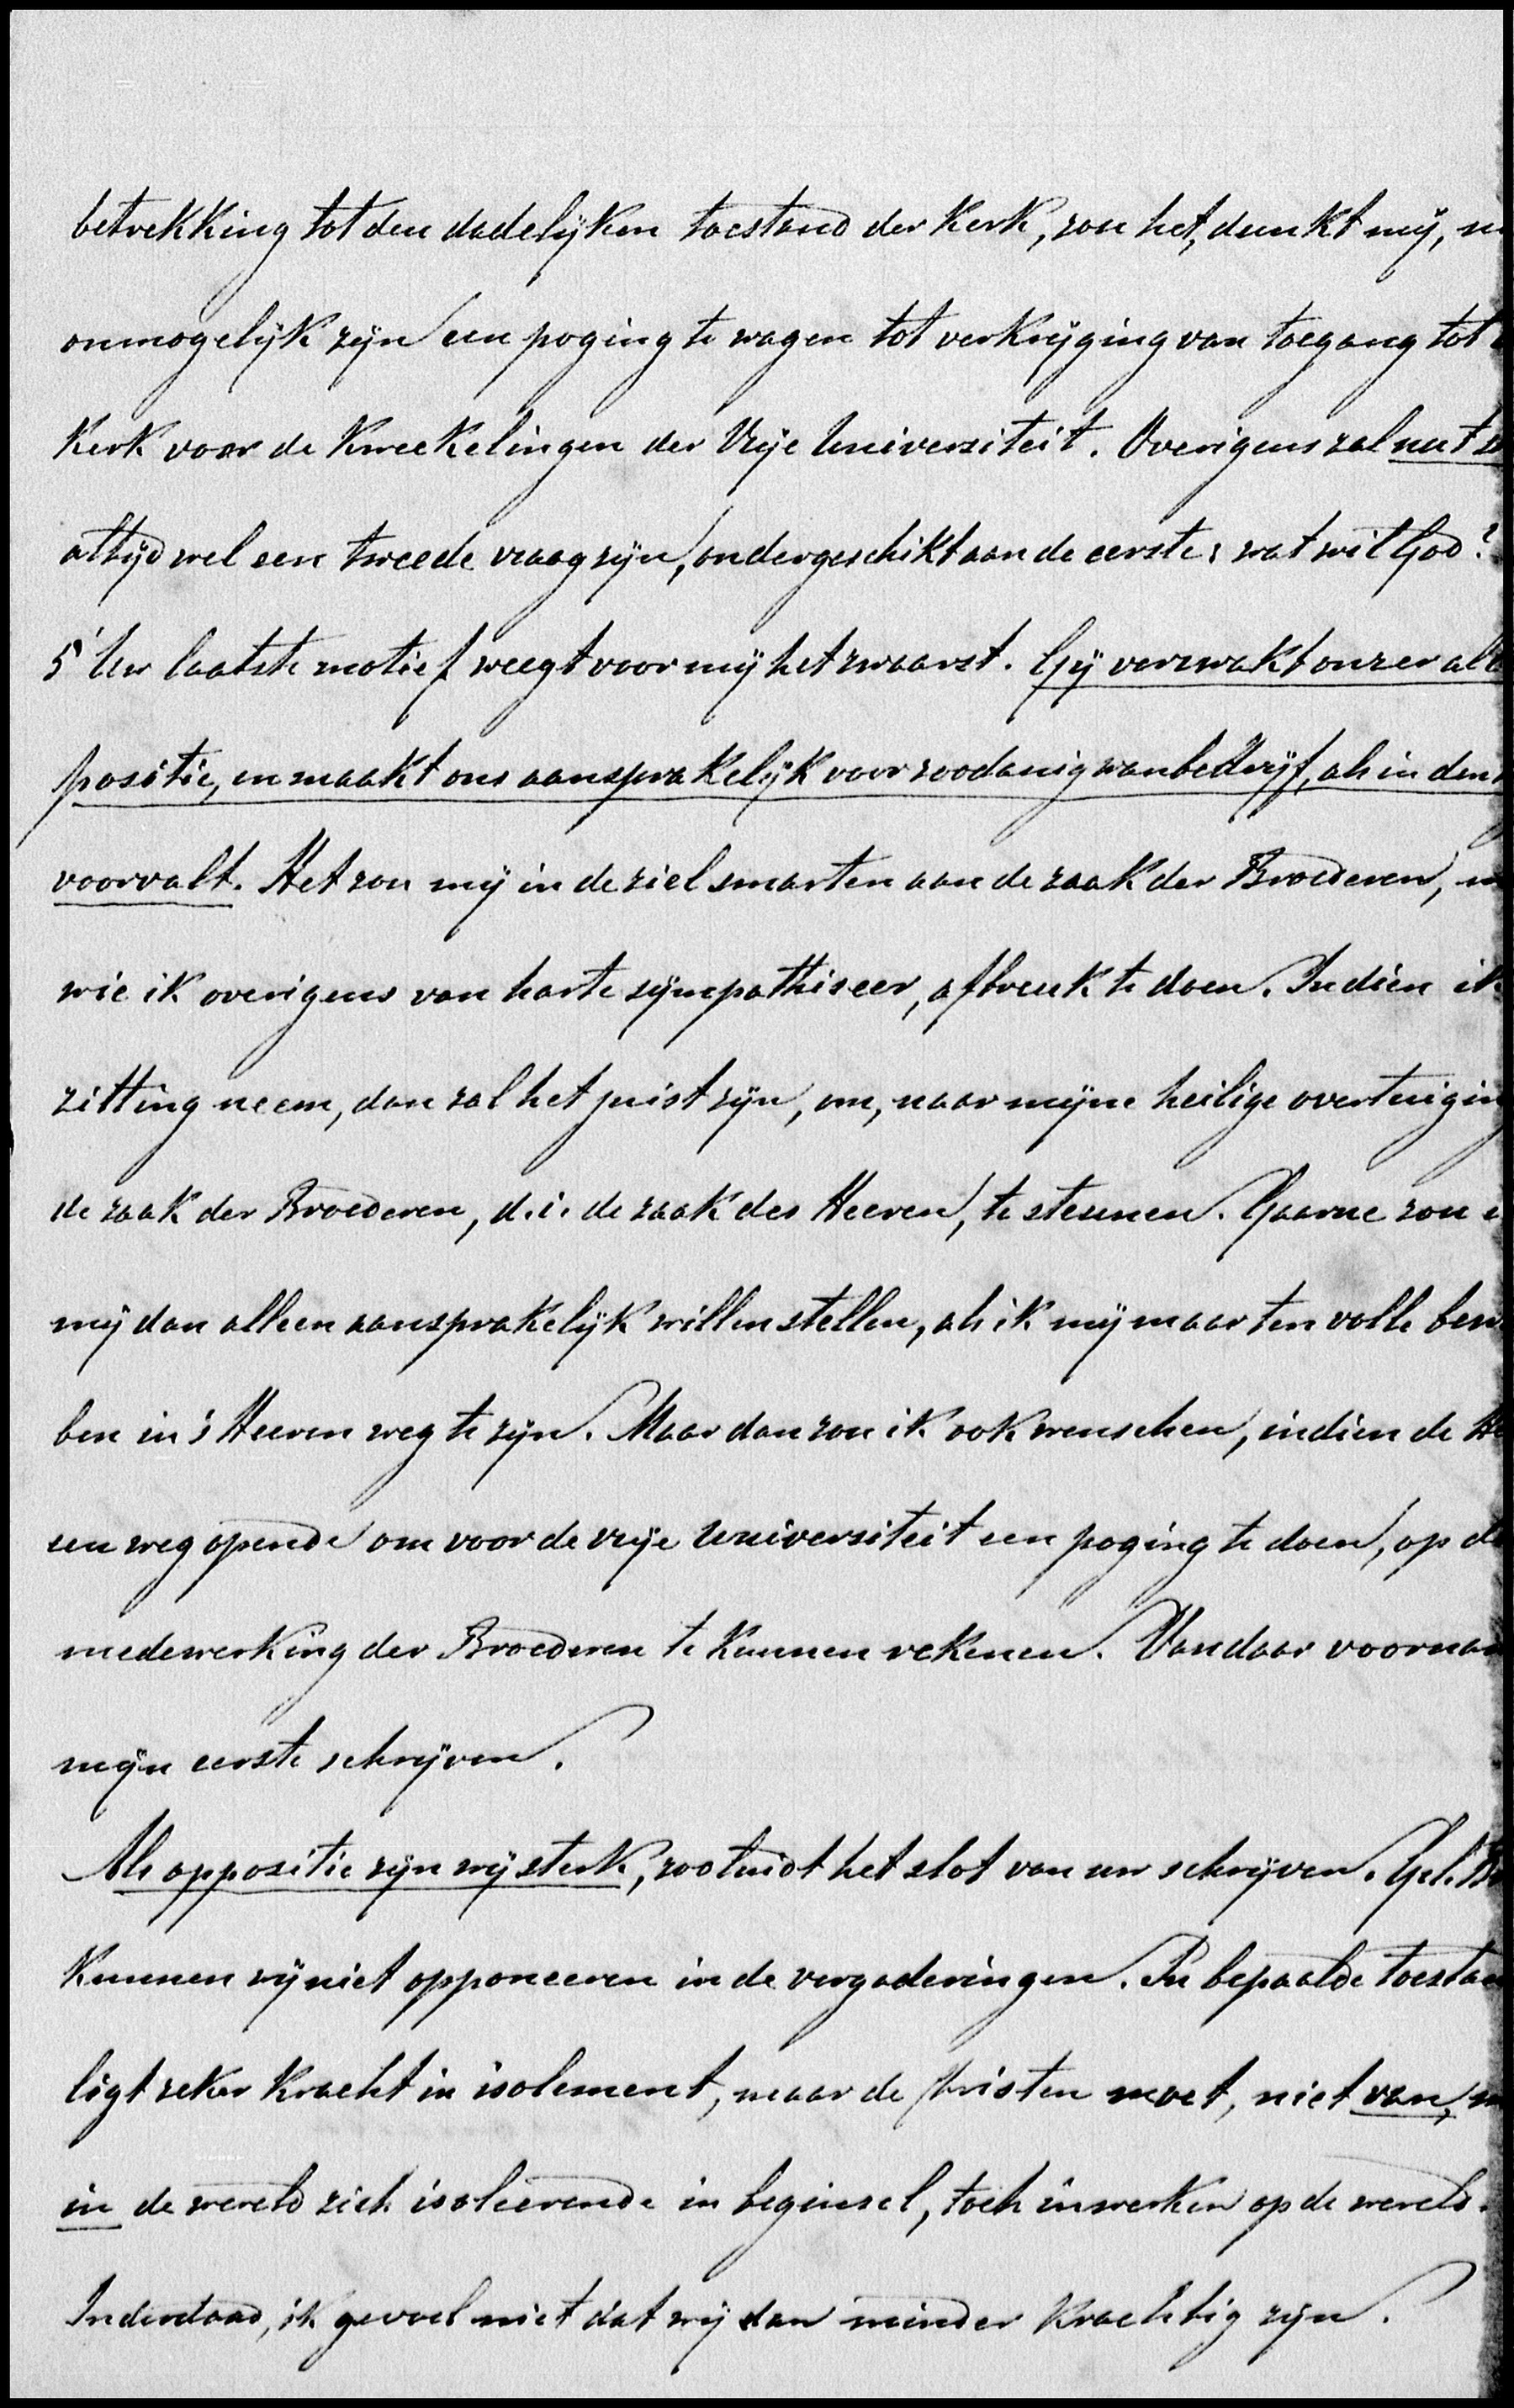 betrekking tot den dadelijken toestand der Kerk, zou het, dunkt mij,
onmogelijk zijn een poging te wagen tot verkrijging van toegang tot
Kerk voor de Kweekelingen der Vrije Universiteit. Overigens zal nut
altijd wel een tweede vraag zijn, ondergeschikt aan de eerste: wat wil God?
5° Uw laatste motief weegt voor mij het zwaarst. Gij verzwakt onzer al
positie, en maakt ons aansprakelijk voor zoodanig wanbedrijf, als in den
voorvalt. Het zou mij in de ziel smarten aan de zaak der Broederen,
wie ik overigens van harte sijmpathiseer, afbreuk te doen. Indien ik
zitting neem, dan zal het juist zijn, om, naar mijne heilige overtuiging
de zaak der Broederen, d.i. de zaak des Heeren, te steunen. Gaarne zou
mij dan alleen aansprakelijk willen stellen, als ik mij maar ten volle bew
ben in 's Heeren weg te zijn. Maar dan zou ik ook wenschen, indien de He
een weg opende om voor de vrije Universiteit een poging te doen, op de
medewerking der Broederen te kunnen rekenen. Vandaar voornam
mijn eerste schrijven.
Als oppositie zijn wij sterk, zoo luidt het slot van uw schrijven. Gel. Br
Kunnen wij niet opponeeren in de vergaderingen. In bepaalde toestan
ligt zeker kracht in isolement, maar de christen moet, niet van,
in de wereld zich isoleerende in beginsel, toch inwerken op de wereld.
Inderdaad, ik gevoel niet dat wij dan minder krachtig zijn.